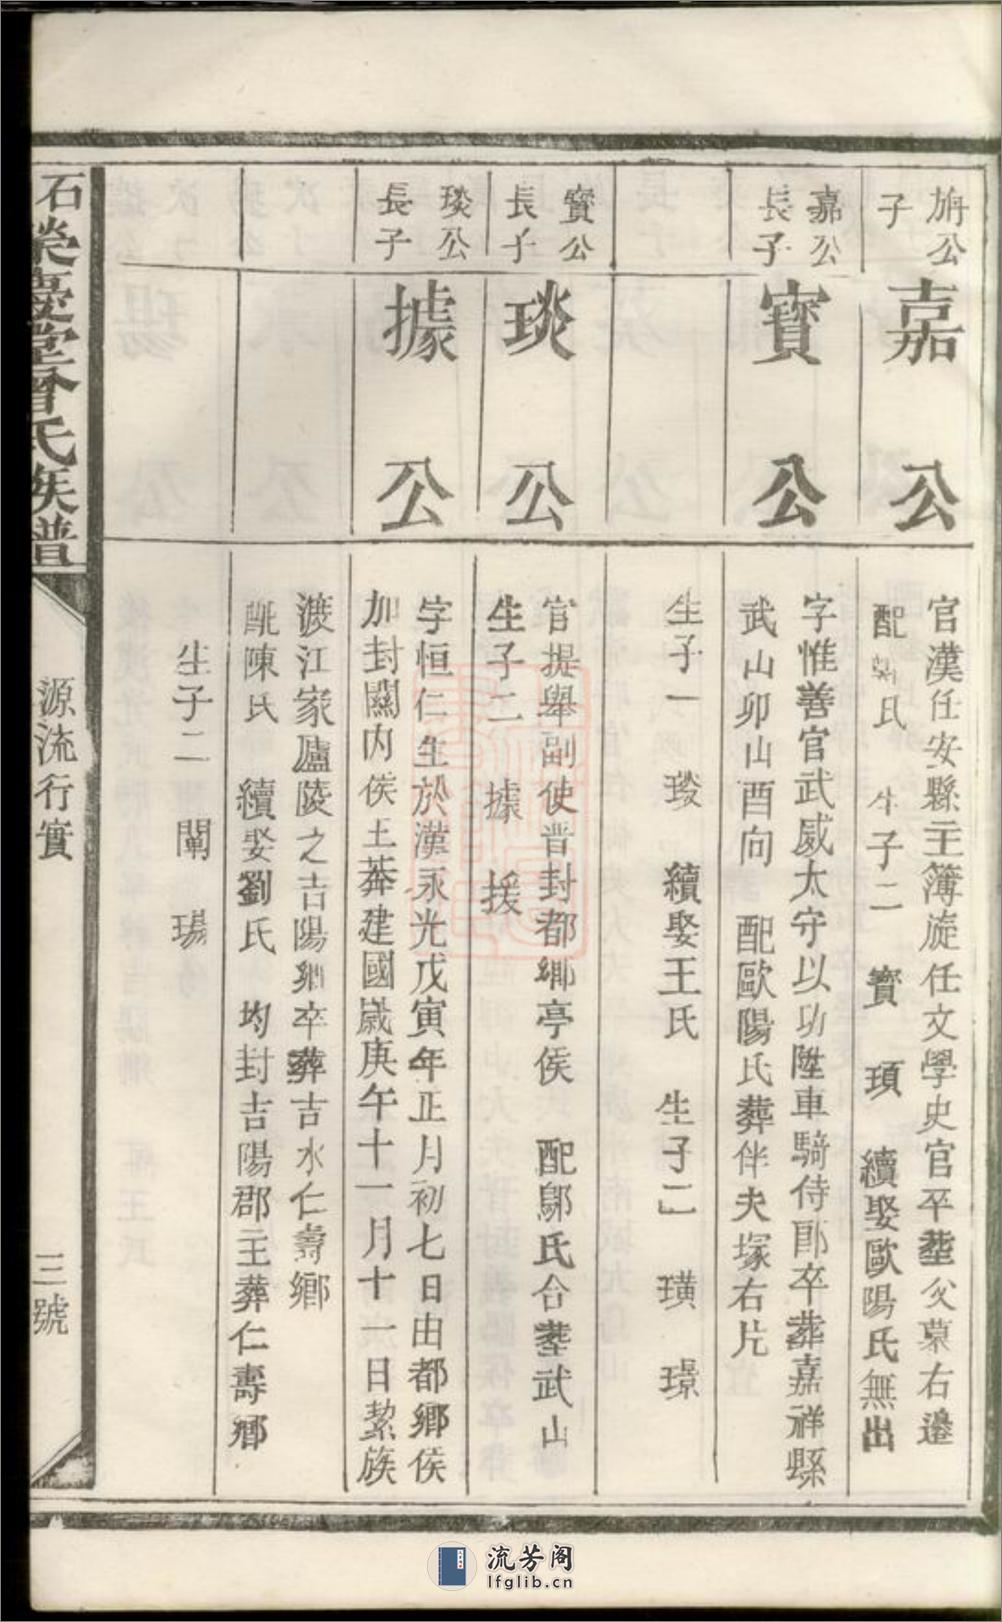 旃公
子
嘉公
官漢任安縣主簿旋任文學史官卒塟父墓右邉
配 氏 生子二 寳 頊 續娶歐陽氏無出
嘉公
長子
寳公
字惟善官武威太守以功陞車騎侍郎卒葬嘉祥縣
武山卯山酉向 配歐陽氏葬伴夫塚右片
生子一 琰 續娶王氏 生子二 璜 璟
寳公
長子
琰公
官提舉副使晋封都鄉亭侯 配鄔氏合塟武山
生子二 據 援
琰公
長子
據公
字恒仁生於漢永光戊寅年正月初七日由都鄉侯
加封關內侯王莽建國歲庚午十一月十一日絜族
渡江家廬陵之吉陽鄉卒葬吉水仁壽鄉
配陳氏 續娶劉氏 均封吉陽郡主葬仁壽鄉
生子二 闡 瑒
石榮慶堂曾氏族譜
源流行實
三號
流芳阁
lfglib.cn